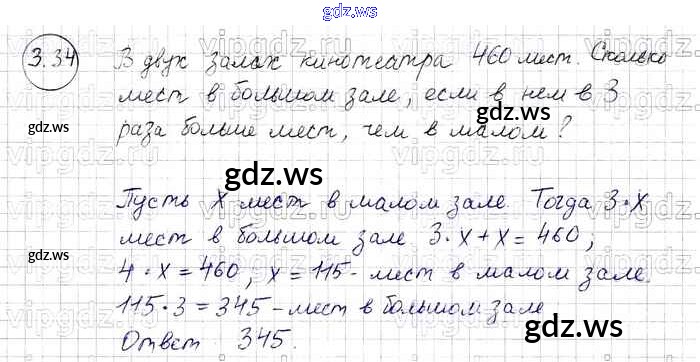 gdz.ws
3.34 В двух залах кинотеатра 460 мест. Сколько
мест в большом зале, если в нем в 3
gdz.ws
gdz.ws
gdz.ws
раза больше мест, чем в малом?
gdz.ws
Пусть x мест в малом зале. Тогда 3·x
мест в большом зале. 3·x+x=460;
gdz.ws
gdz.ws
4·x=460, x=115- мест в малом зале.
115·3=345-мест в большом зале
gdz.ws
Ответ 345.